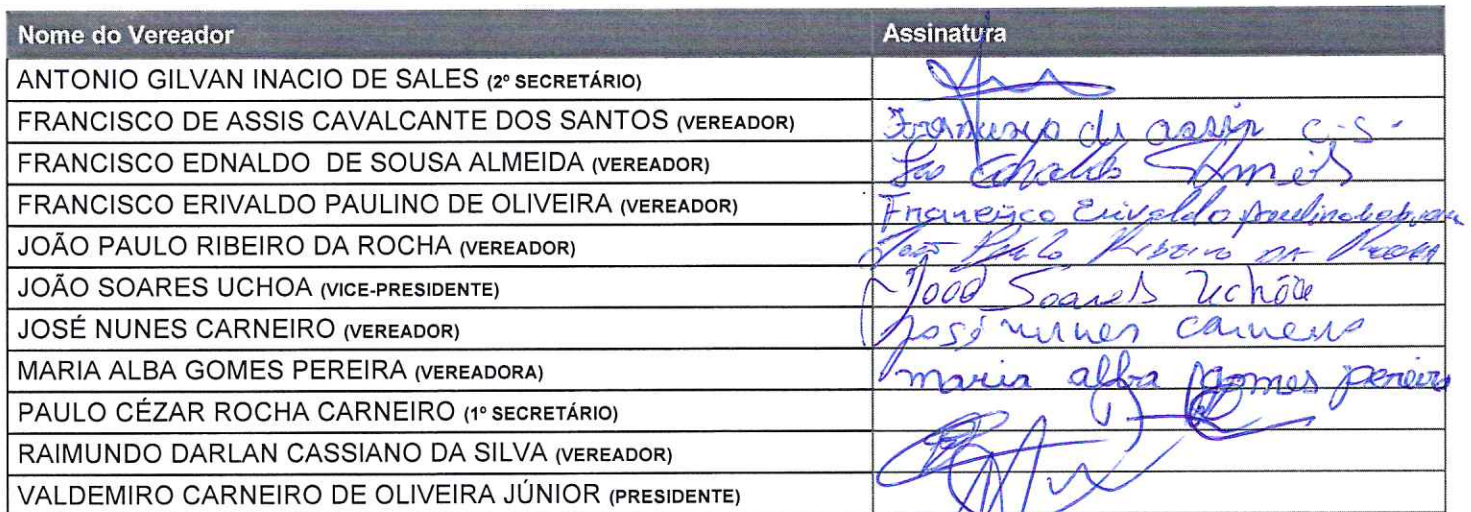 Nome do Vereador Assinatura
ANTONIO GILVAN INACIO DE SALES (2º SECRETÁRIO)
FRANCISCO DE ASSIS CAVALCANTE DOS SANTOS (VEREADOR) Francisco de assis C.S.
FRANCISCO EDNALDO DE SOUSA ALMEIDA (VEREADOR) Ednaldo Almeida
FRANCISCO ERIVALDO PAULINO DE OLIVEIRA (VEREADOR) Francisco Erivaldo paulino
JOÃO PAULO RIBEIRO DA ROCHA (VEREADOR) João Paulo Ribeiro DA Rocha
JOÃO SOARES UCHOA (VICE-PRESIDENTE) João Soares Uchôa
JOSÉ NUNES CARNEIRO (VEREADOR) José nunes carneiro
MARIA ALBA GOMES PEREIRA (VEREADORA) maria alba gomes pereira
PAULO CÉZAR ROCHA CARNEIRO (1º SECRETÁRIO)
RAIMUNDO DARLAN CASSIANO DA SILVA (VEREADOR)
VALDEMIRO CARNEIRO DE OLIVEIRA JÚNIOR (PRESIDENTE)